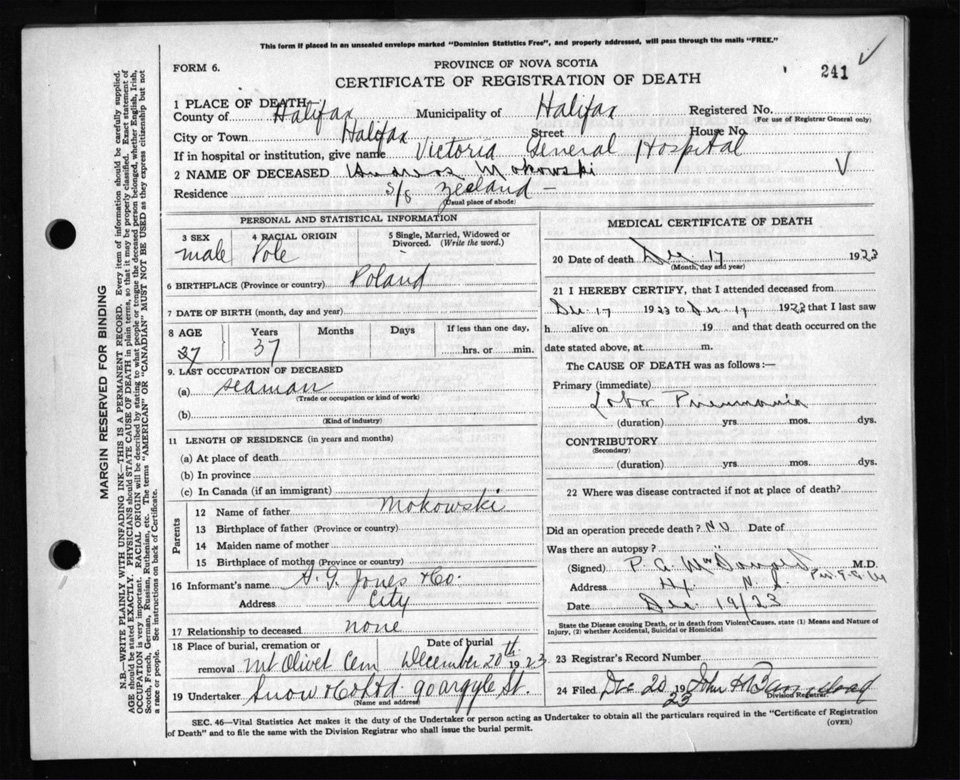 This form if placed in an unsealed envelope marked "Dominion Statistics Free", and properly addressed, will pass through the mails "FREE."
FORM 6.
PROVINCE OF NOVA SCOTIA
CERTIFICATE OF REGISTRATION OF DEATH
241
1 PLACE OF DEATH
County of Halifax Municipality of Halifax Registered No.
(For use of Registrar General only)
City or Town Halifax Street House No
If in hospital or institution, give name Victoria General Hospital
2 NAME OF DECEASED Mokowski
Residence S/S Zeeland
(Usual place of abode)
PERSONAL AND STATISTICAL INFORMATION
3 SEX 4 RACIAL ORIGIN 5 Single, Married, Widowed or Divorced. (Write the word.)
male Pole
6 BIRTHPLACE (Province or country) Poland
7 DATE OF BIRTH (month, day and year)
8 AGE Years Months Days If less than one day,
37 37 hrs. or min.
9. LAST OCCUPATION OF DECEASED
(a) seaman
(Trade or occupation or kind of work)
(b)
(Kind of industry)
11 LENGTH OF RESIDENCE (in years and months)
(a) At place of death
(b) In province
(c) In Canada (if an immigrant)
Parents
12 Name of father Mokowski
13 Birthplace of father (Province or country)
14 Maiden name of mother
15 Birthplace of mother (Province or country)
16 Informant's name Jones & Co.
Address City
17 Relationship to deceased none
18 Place of burial, cremation or removal Mt Olivet Cem Date of burial December 20th 1923
19 Undertaker Snow & Co Ltd. 90 Argyle St.
(Name and address)
MEDICAL CERTIFICATE OF DEATH
20 Date of death Dec 17 1923
(Month, day and year)
21 I HEREBY CERTIFY, that I attended deceased from
Dec 17 1923 to Dec 17 1923 that I last saw
h alive on 19 and that death occurred on the
date stated above, at m.
The CAUSE OF DEATH was as follows:—
Primary (immediate)
Lobar Pneumonia
(duration) yrs. mos. dys.
CONTRIBUTORY
(Secondary)
(duration) yrs. mos. dys.
22 Where was disease contracted if not at place of death?
Did an operation precede death? NO Date of
Was there an autopsy?
(Signed) M.D.
Address Hx. N.S.
Date Dec 19/23
State the Disease causing Death, or in death from Violent Causes, state (1) Means and Nature of
Injury, (2) whether Accidental, Suicidal or Homicidal
23 Registrar's Record Number
24 Filed Dec 20 1923 John H
Division Registrar
SEC. 46—Vital Statistics Act makes it the duty of the Undertaker or person acting as Undertaker to obtain all the particulars required in the "Certificate of Registration
of Death" and to file the same with the Division Registrar who shall issue the burial permit.
(OVER)
MARGIN RESERVED FOR BINDING
N.B.—WRITE PLAINLY WITH UNFADING INK—THIS IS A PERMANENT RECORD. Every item of information should be carefully supplied.
AGE should be stated EXACTLY. PHYSICIANS should STATE CAUSE OF DEATH in plain terms, so that it may be properly classified. Exact statement of
OCCUPATION is very important. RACIAL ORIGIN will be described by stating to what people or tongue the deceased person belonged, whether English, Irish,
Scotch, French, German, Russian, Ruthenian, etc. The terms "AMERICAN" OR "CANADIAN" MUST NOT BE USED as they express citizenship but not
a race or people. See instructions on back of Certificate.